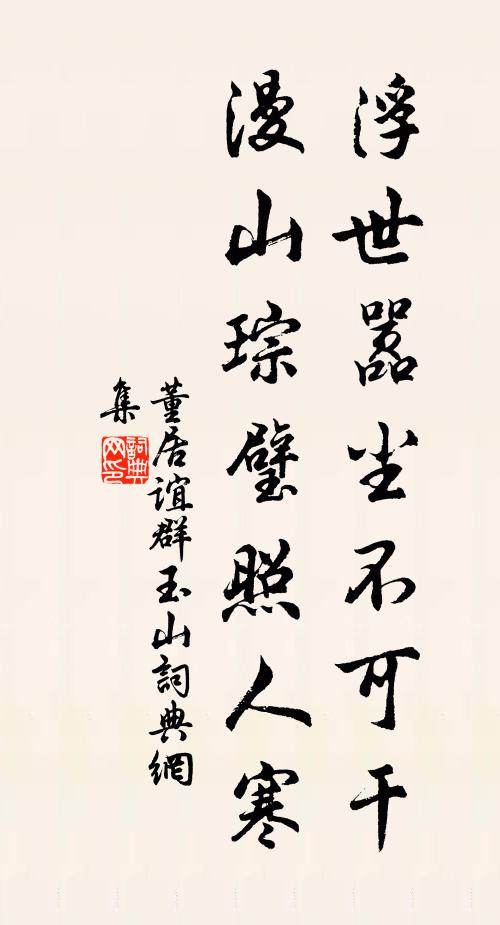 浮世嚣尘不可干
漫山琮璧照人寒
董居誼群玉山詞典網
集
詞典
网印